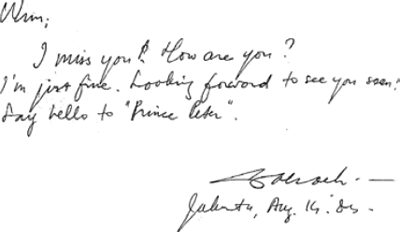 Wim,
I miss you! How are you?
I'm just fine. Looking forward to see you soon!
Say hello to "Prince Peter".
Jakarta, Aug. 14. 84.